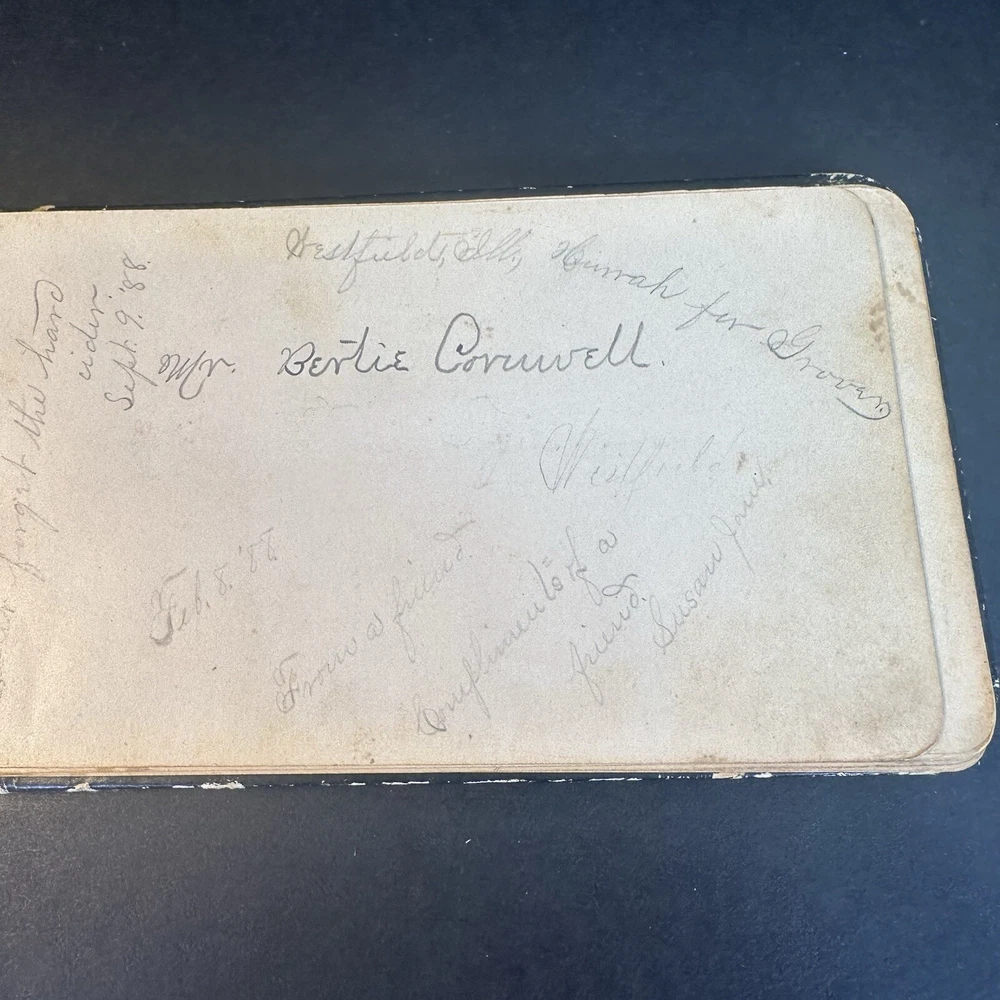 Westfield, Ill., Hurrah for Grover.
Mr. Bertie Cornwell.
forget the hard
cider
Sept. 9. '88.
Westfield
Feb. 8. '88.
From a friend.
Compliments of a
friend.
Susan Jane.